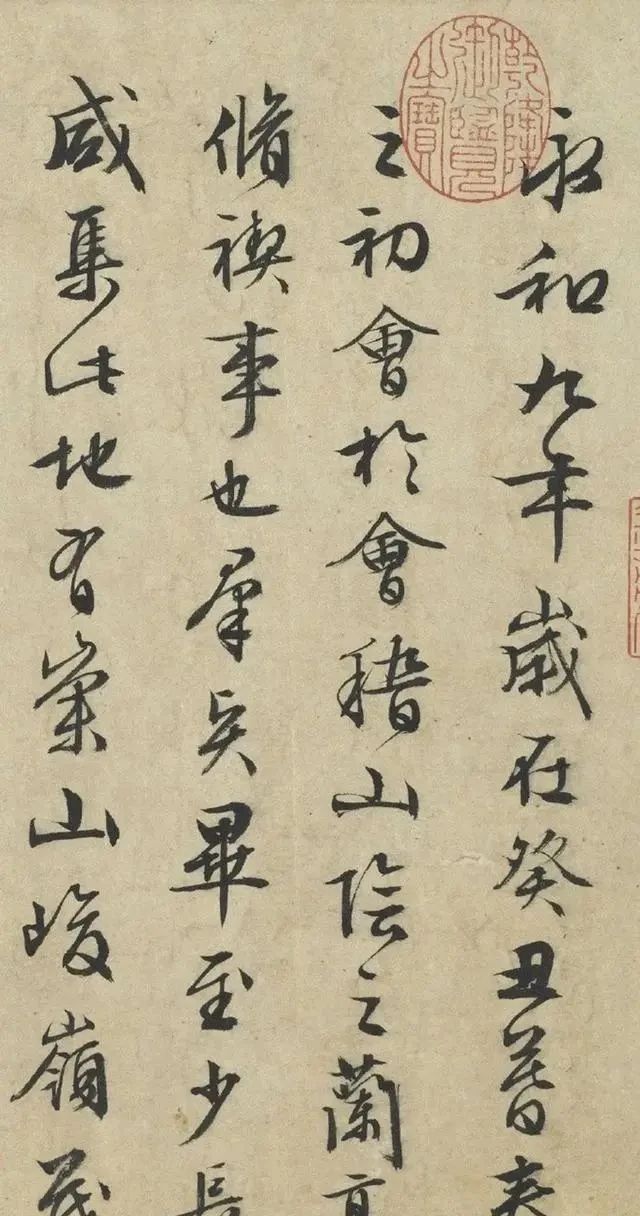 永和九年歲在癸丑暮春
之初會於會稽山陰之蘭亭
脩禊事也羣賢畢至少長
咸集此地有崇山峻嶺茂
乾隆御覽之寶